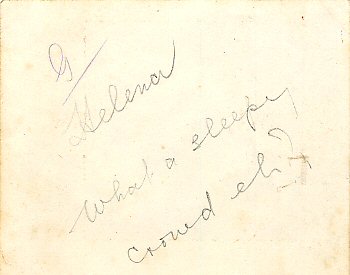 G
Helena
What a sleepy
crowd eh!